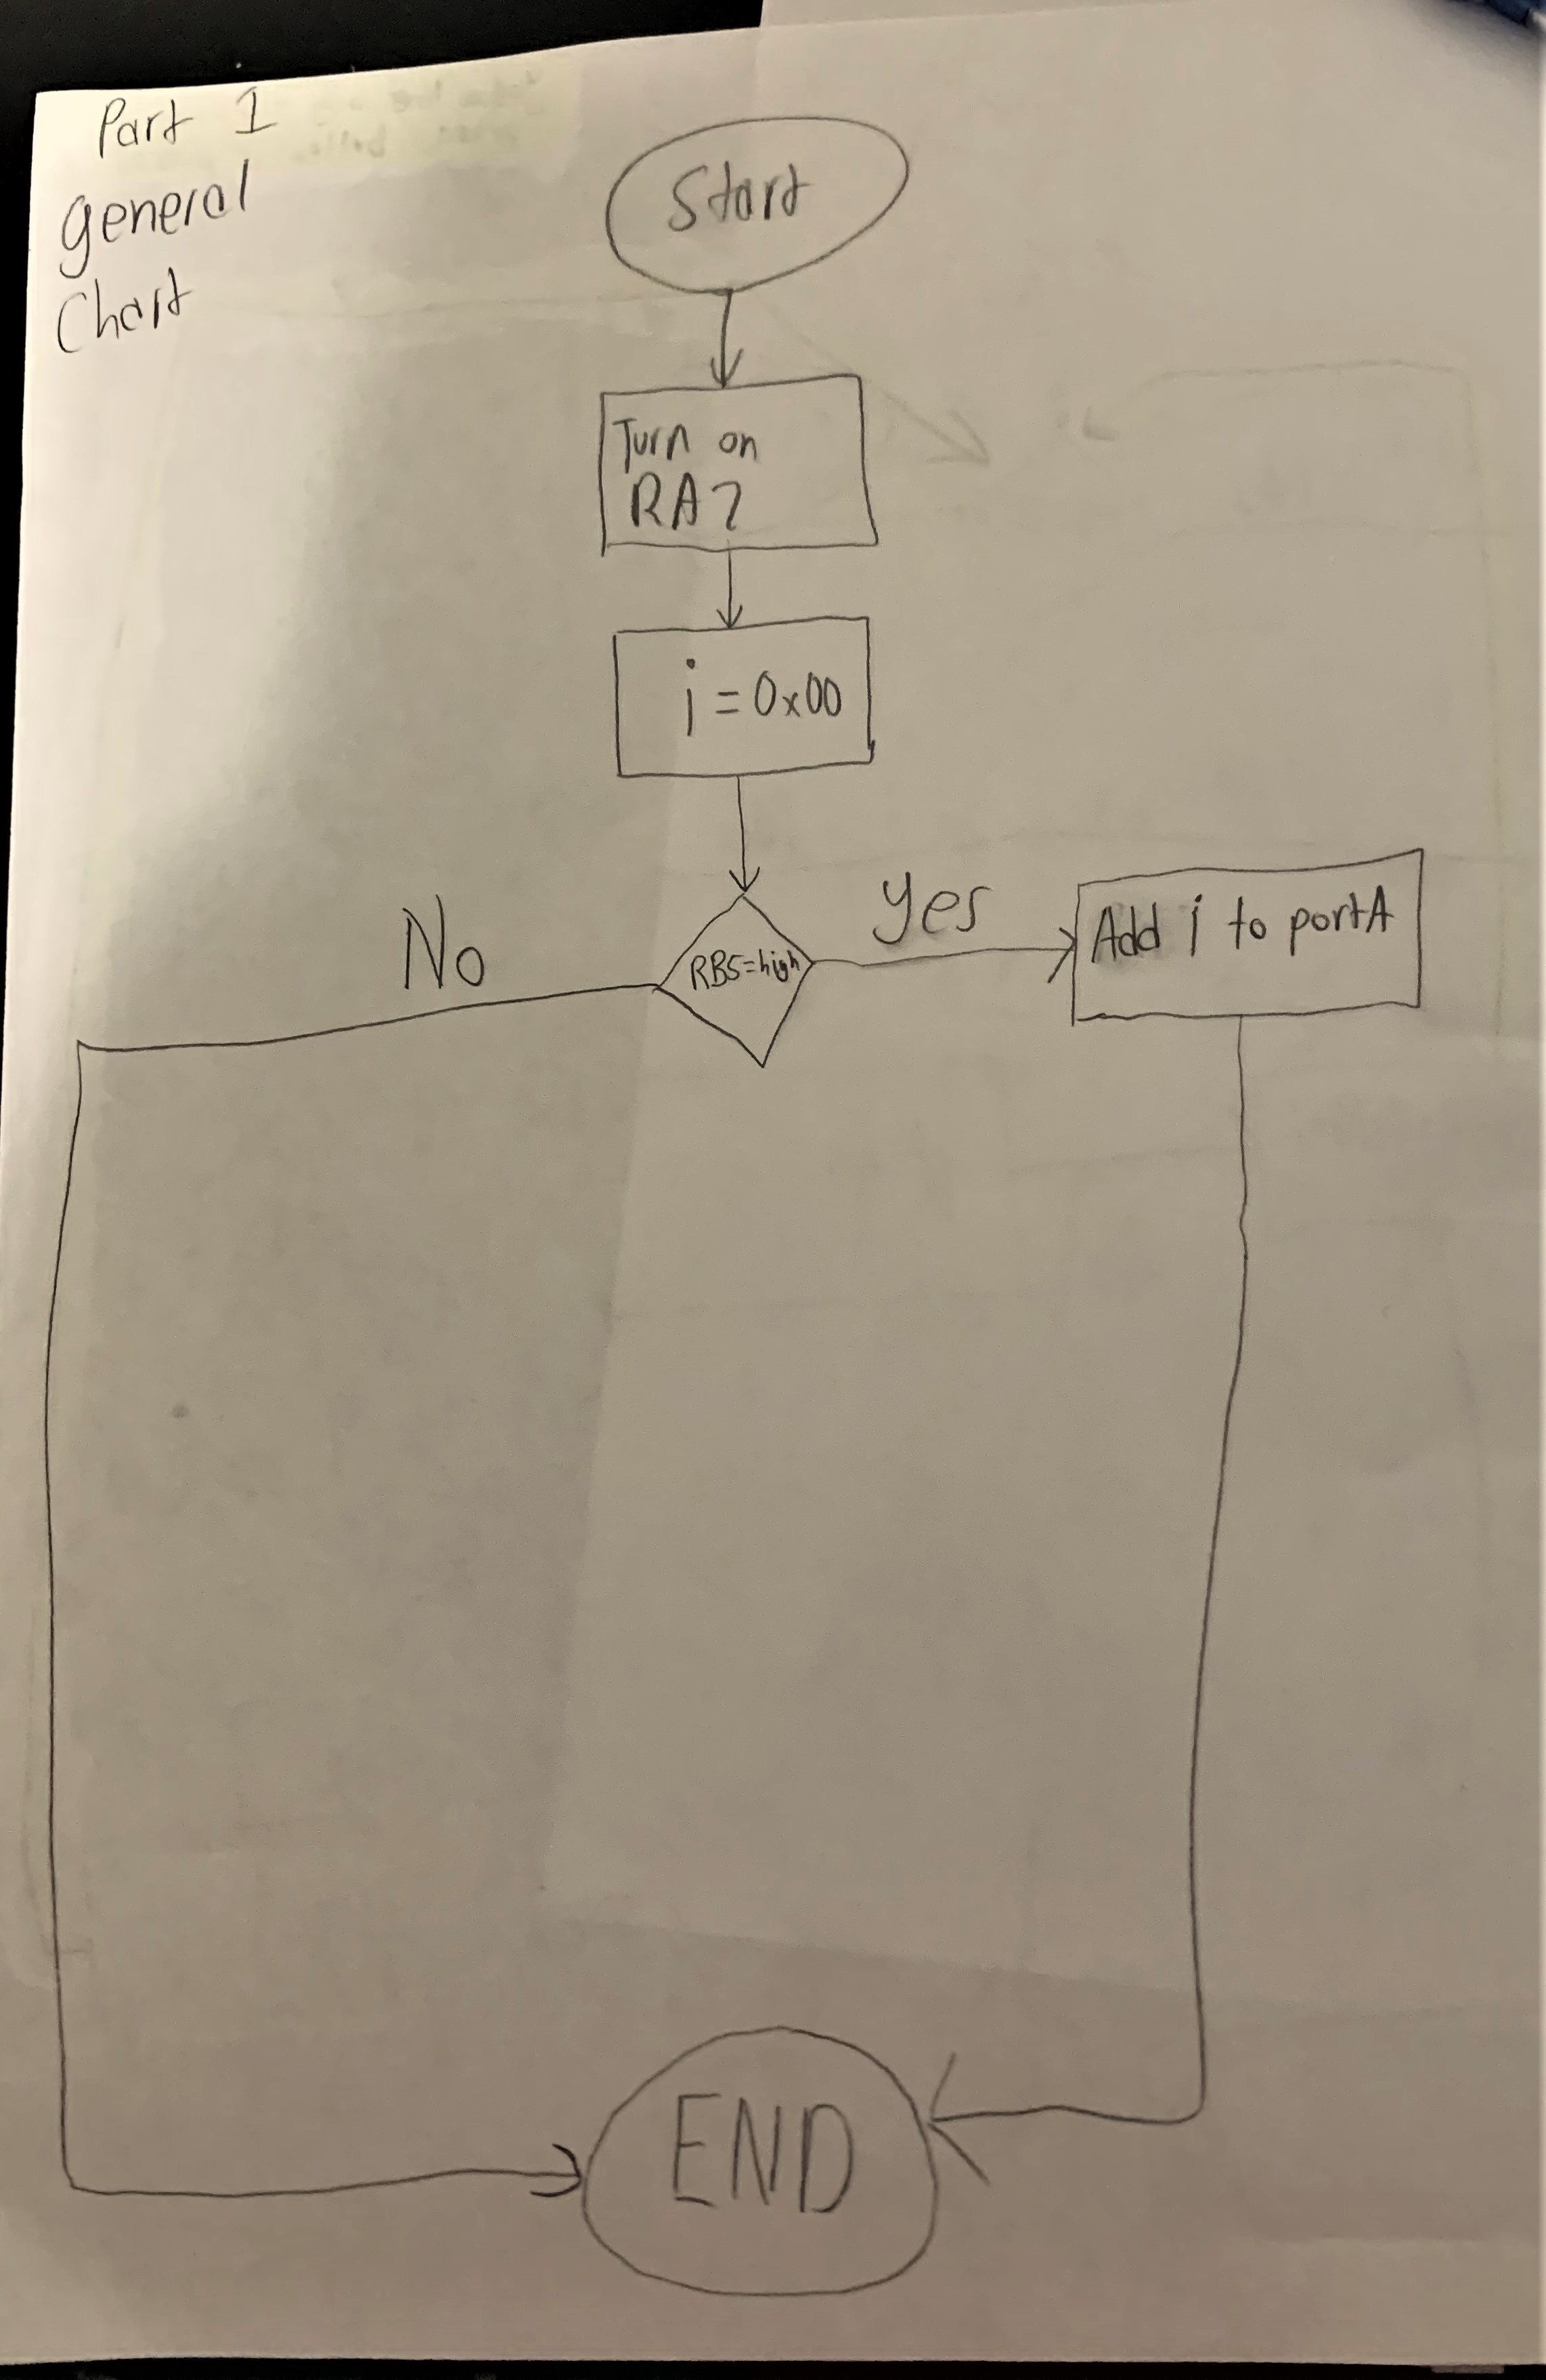 Part 1
general
Chart
Start
Turn on
RA7
i = 0x00
No
RB5=high
yes
Add i to portA
END